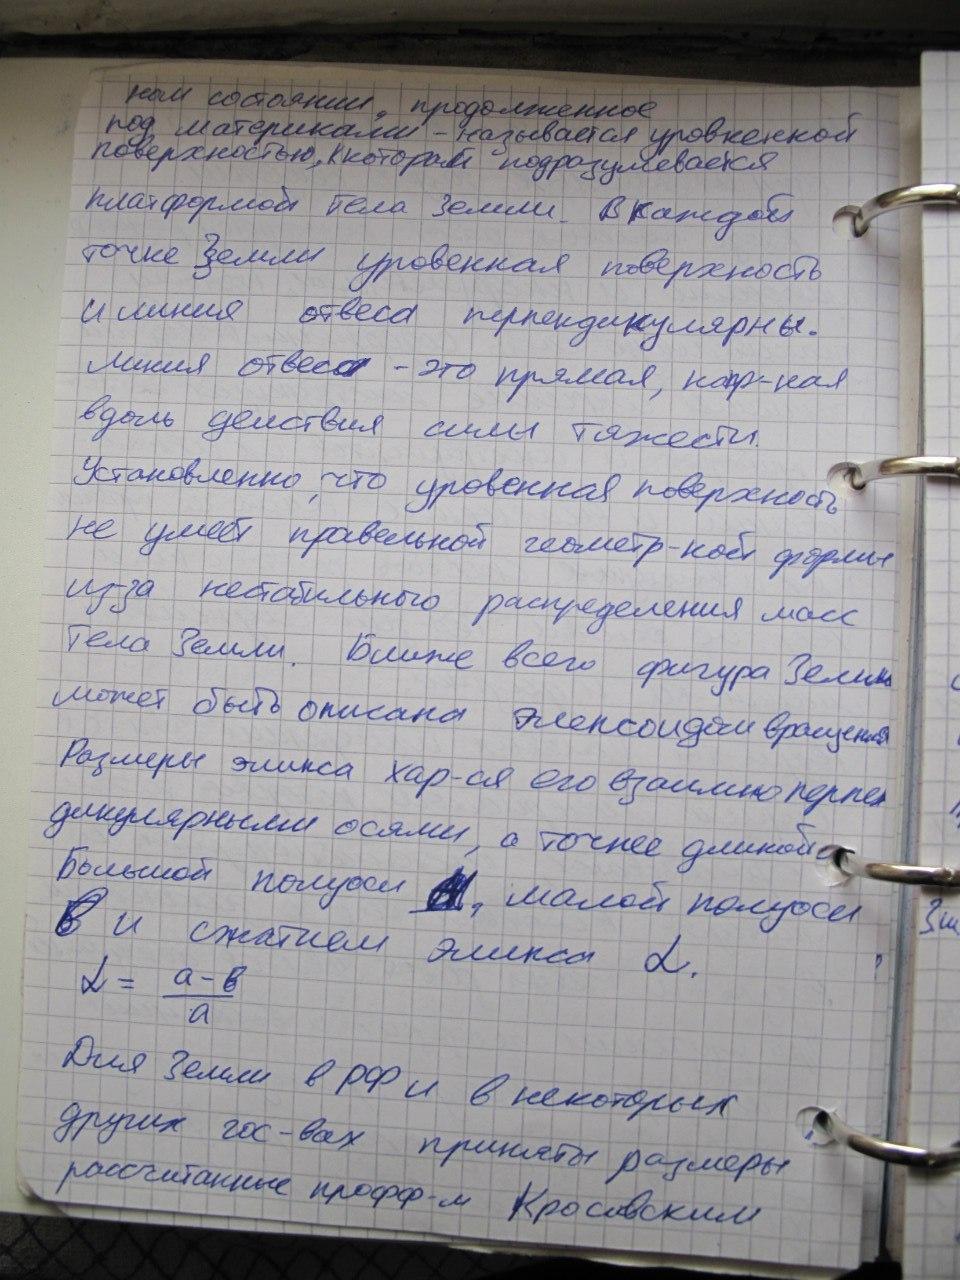 ном состоянии, продолженное
под материками - называется уровненной
поверхностью, которой подразумевается
платформой тела Земли. В каждой
точке Земли уровенная поверхность
и линия отвеса перпендикулярны.
Линия отвеса - это прямая, напр-ная
вдоль действия силы тяжести.
Установленно, что уровенная поверхность
не умеет правельной геометр-кой формы
из-за нестабильного распределения масс
Тела Земли. Ближе всего фигура Земли
может быть описана элепсоидом вращения
Размеры элипса хар-ся его взаимно перпен
дикулярными осями, а точнее длиной
Большой полуоси а, малой полуоси
в и сжатием элипса α.
α = a-в
a
Для Земли в РФ и в некоторых
других гос-вах приняты размеры
рассчитанные профф-м Кросовским